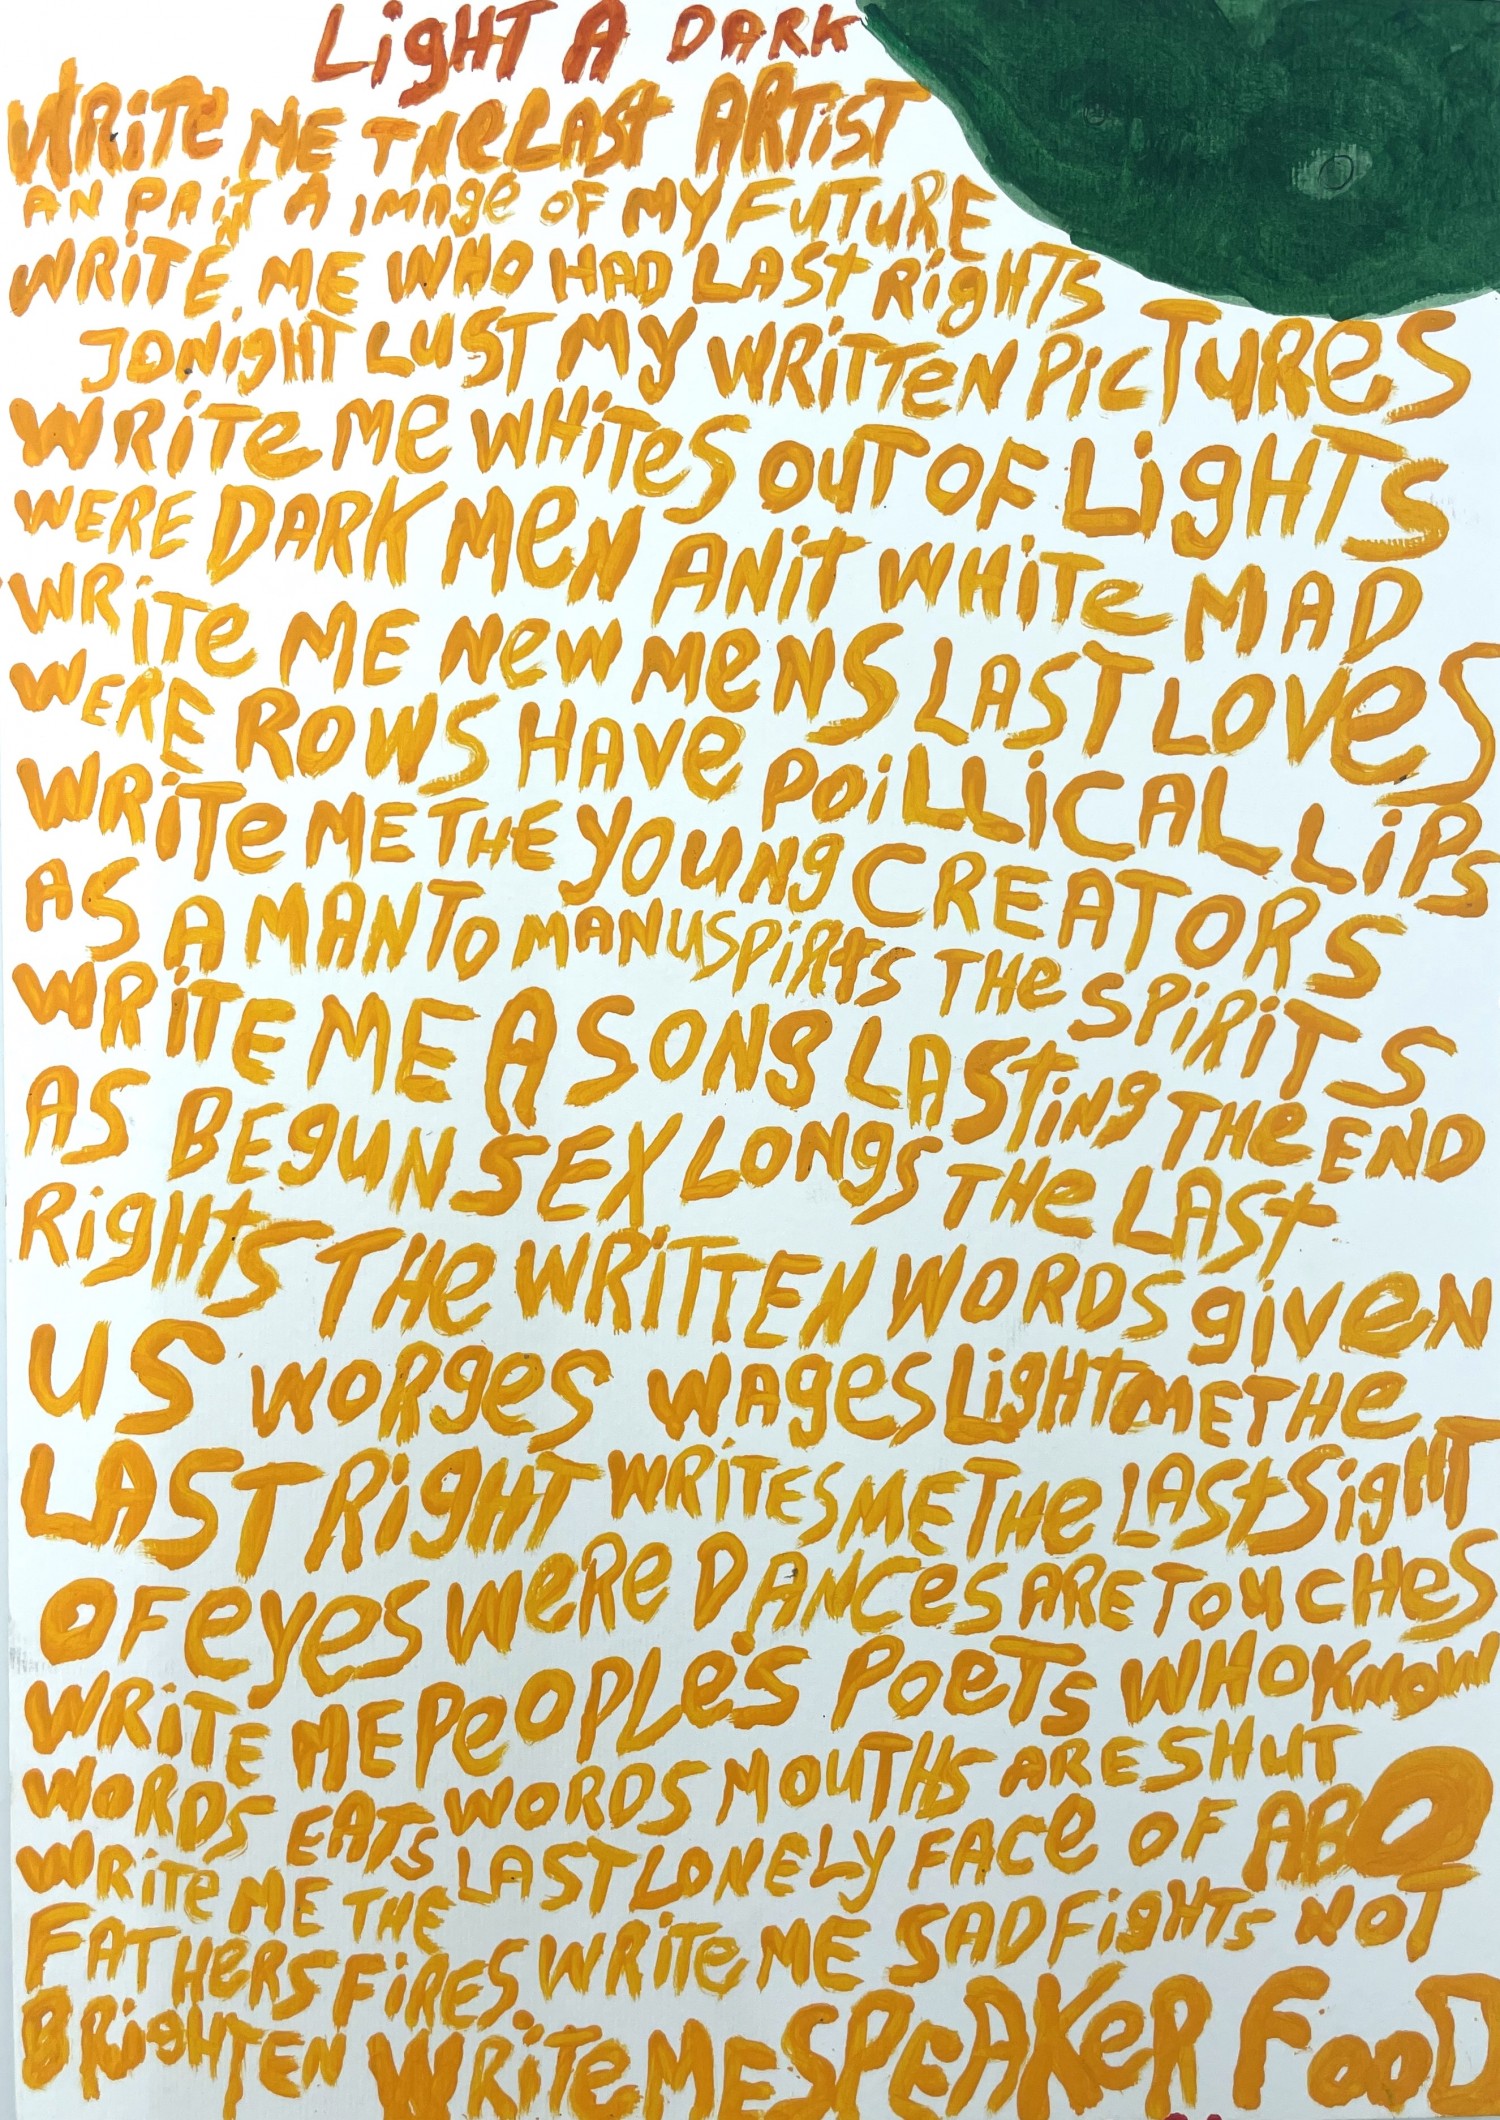 LigHT A DARK
WRiTe ME THe LAST ARTiST
AN PAiNT A iMAge OF MY FUTURE
WRiTE ME WHO HAD LASt RigHTS
TONigHT LUST MY WRiTTeN PicTUReS
WRiTe Me WHiTeS OUT OF LigHTS
WERE DARK MeN ANit WHiTe MAD
WRiTe ME NeW MeNS LAST LOVeS
WERE ROWS HAVe POiLLiCAL LiPS
WRiTe ME THE YOUNg CREATORS
AS A MAN TO MANUSPiRtS THe SPiRiTS
WRiTE ME A SONg LAStiNg THe END
AS BEgUN SEX LONgS THe LASt
RigHtS THe WRiTTEN WORDS giveN
US WORgeS WAgeS LigHT ME THe
LAST RigHT WRiTES ME THe LASt SigHT
OF eYeS WeRe DANCeS ARE TOUCHeS
WRiTE ME PeOPLe'S POeTS WHO KNOW
WORDS EATS WORDS MOUTHS ARE SHUT
WRiTe ME THE LAST LONELY FACe OF ABO
FATHeRS FiRES. WRiTe ME SAD FigHTS NOT
BRigHTEN WRiTe ME SPEAKeR FOOD